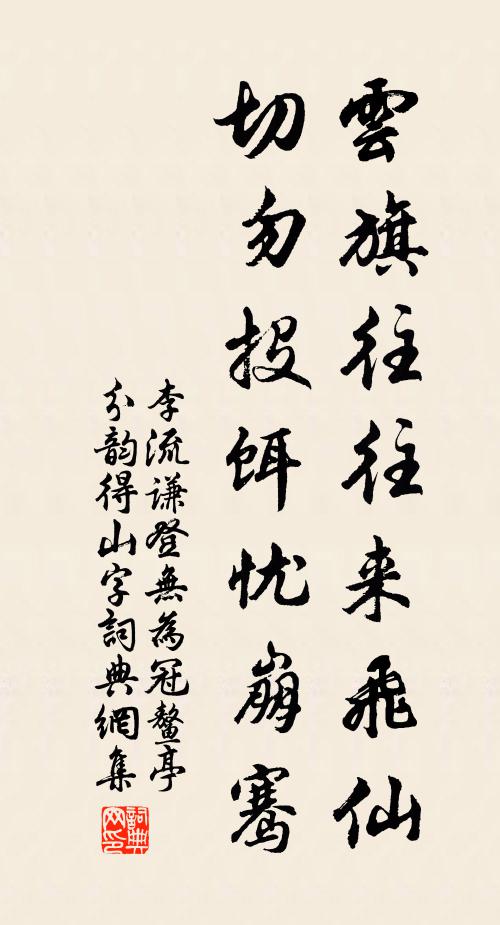 雲旗往往来飛仙
切勿投餌忧崩骞
李流谦登無為冠鳌亭
分韵得山字詞典網集
詞典
网印